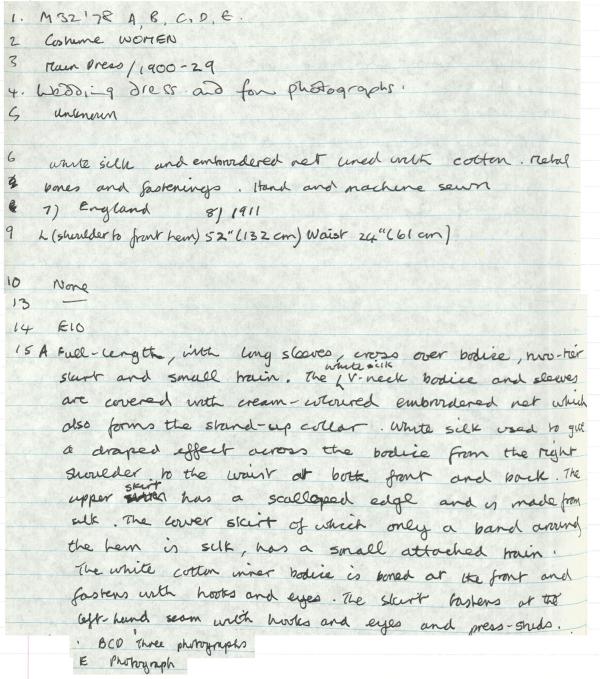 1. M32'78 A, B, C, D, E.
2 Costume WOMEN
3 Main Dress/1900-29
4. Wedding dress and four photographs.
5 Unknown
6 White silk and embroidered net lined with cotton. Metal
bones and fastenings. Hand and machine sewn
7) England 8) 1911
9 L (shoulder to front hem) 52" (132 cm) Waist 24" (61 cm)
10 None
13 —
14 E10
15 A Full-length, with long sleeves, cross over bodice, two-tier
skirt and small train. The white silk V-neck bodice and sleeves
are covered with cream-coloured embroidered net which
also forms the stand-up collar. White silk used to give
a draped effect across the bodice from the right
shoulder to the waist at both front and back. The
upper skirt has a scalloped edge and is made from
silk. The lower skirt of which only a band around
the hem is silk, has a small attached train.
The white cotton inner bodice is boned at the front and
fastens with hooks and eyes. The skirt fastens at the
left-hand seam with hooks and eyes and press-studs.
BCD Three photographs
E Photograph